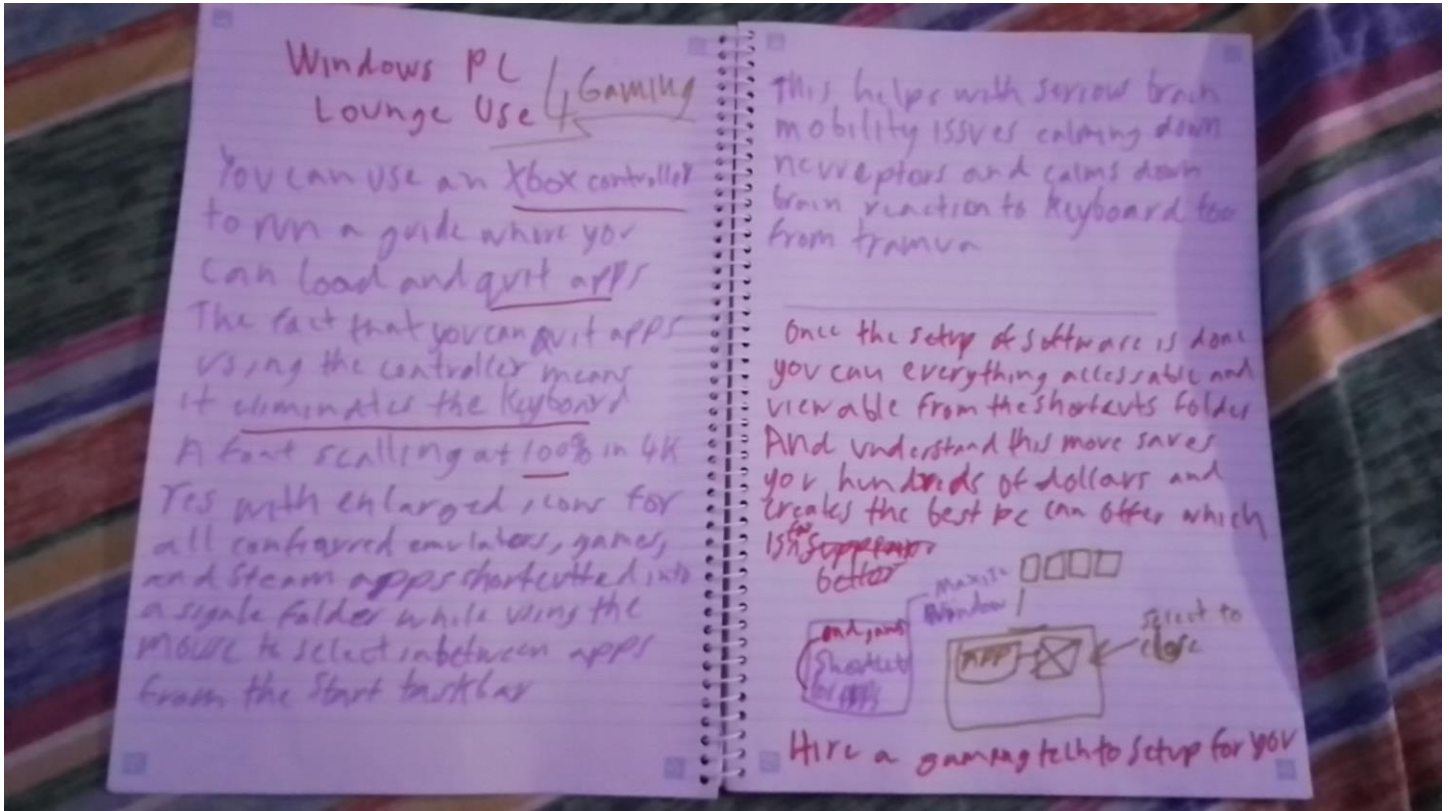 Windows PC
Lounge Use 4 Gaming
You can use an Xbox controller
to run a guide where you
can load and quit apps
The fact that you can quit apps
using the controller means
it eliminates the Keyboard
A font scalling at 100% in 4K
Yes with enlarged icons for
all configured emulators, games,
and Steam apps shortcutted into
a signle folder while using the
mouse to select inbetween apps
from the Start taskbar
This helps with serrow brain
mobility issues calming down
neurreptors and calms down
brain reaction to Keyboard too
from tramua
Once the setup of software is done
you can everything accessable and
viewable from the shortcuts folder
And understand this move saves
you hundreds of dollars and
creates the best pc can offer which
is far
better
Window
Shortcuts
for apps
APP
Select to
close
Hire a gaming tech to setup for you